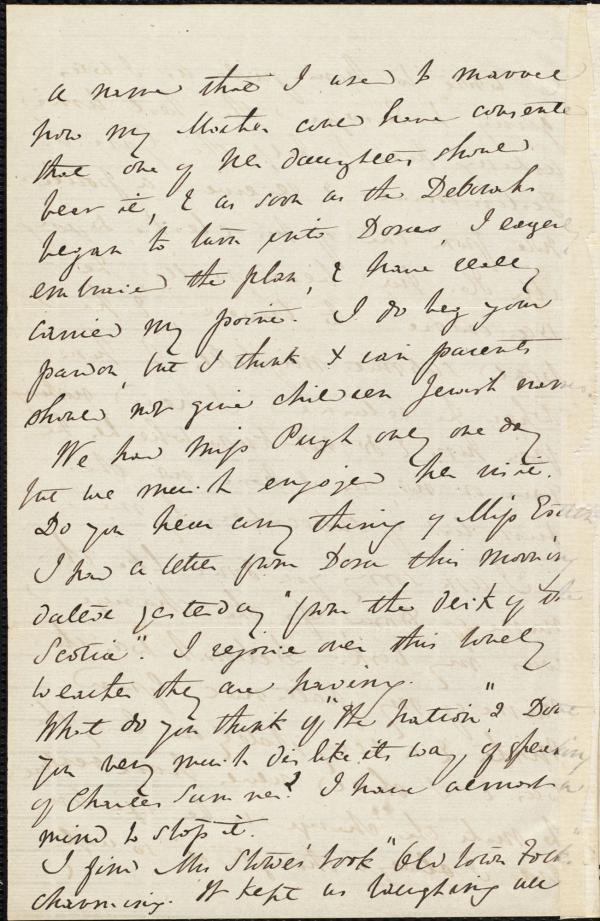 a name that I used to marvel
how my Mother could have consente
that one of her daughters should
bear it, & as soon as the Deborahs
began to turn into Doras, I eagerly
embraced the plan, & have really
carried my point. I do beg your
pardon, but I think Xtian parents
should not give children Jewish names.
We had Miss Pugh only one day
but we much enjoyed her visit.
Do you hear any thing of Miss Estlin
I had a letter from Dora this morning
dated yesterday "from the deck of the
Scotia". I rejoice over this lovely
weather they are having.
What do you think of "the Nation"? Don
you very much dislike its way, of speaking
of Charles Sumner? I have almost a
mind to stop it.
I find Mrs Stowe's book "Old town Folks"
charming. It kept us laughing all